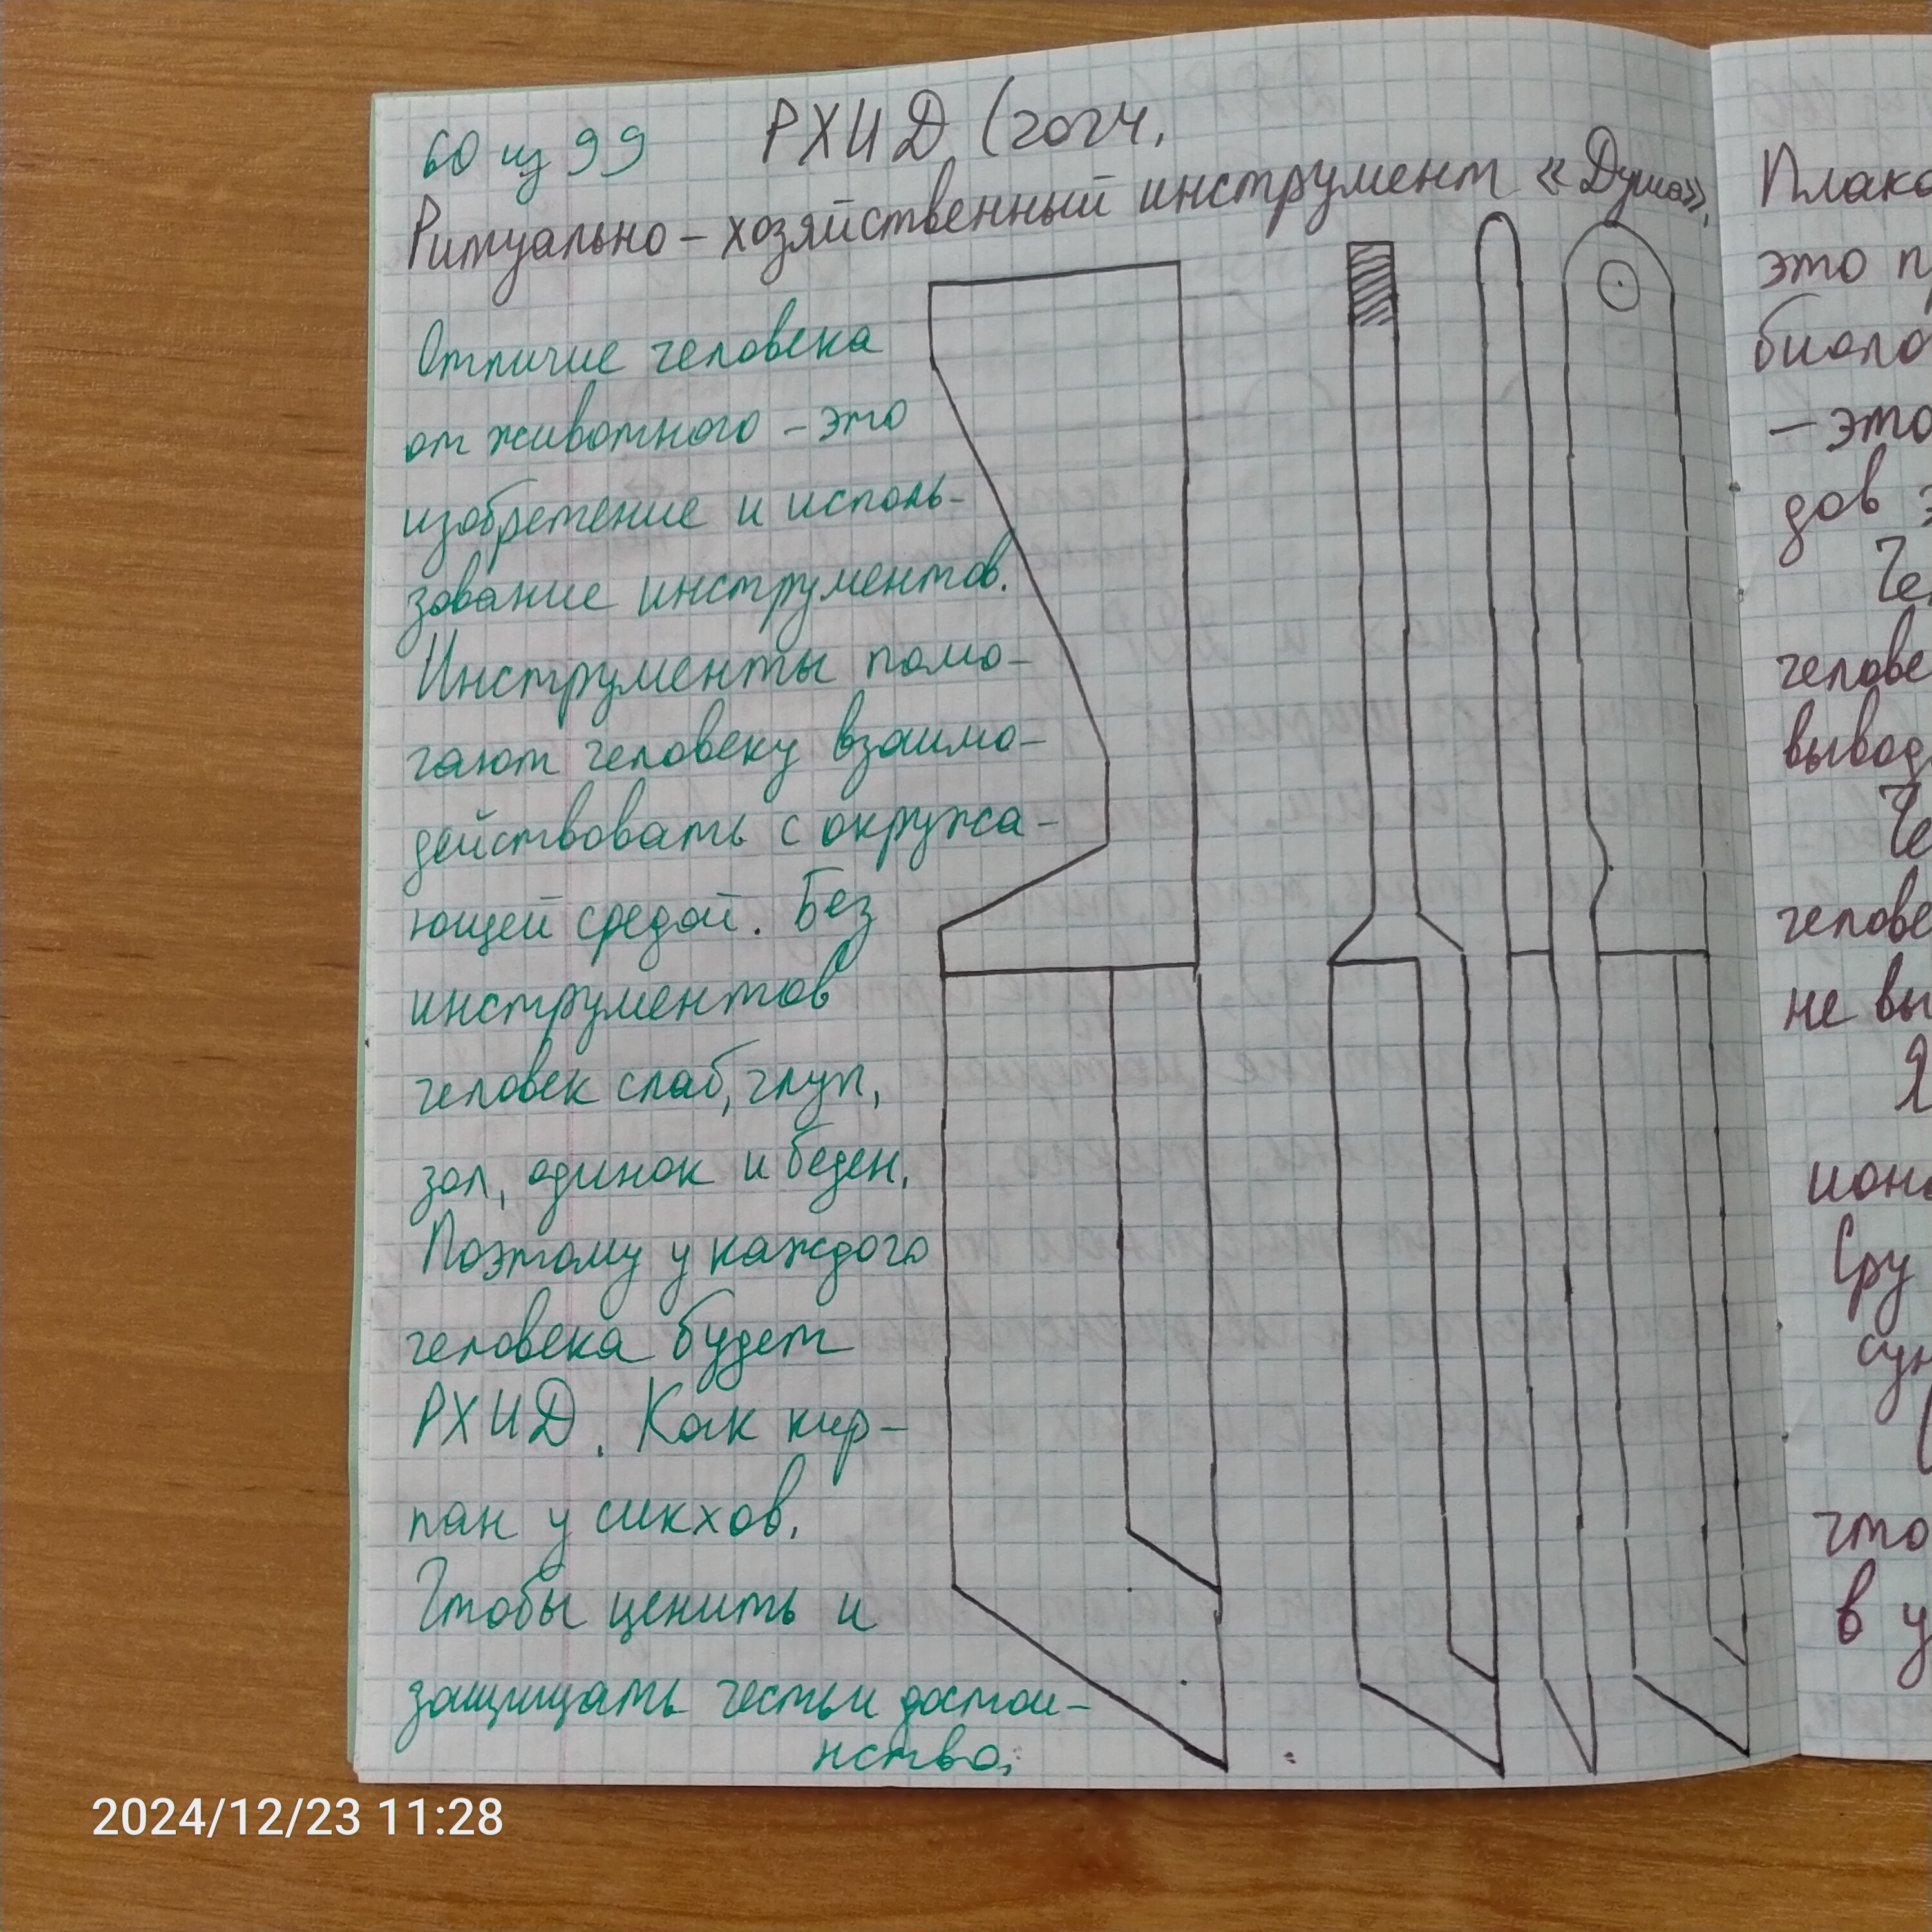 60 из 99
РХИД (гогч.
Ритуально-хозяйственный инструмент «Душа».
Отличие человека
от животного - это
изобретение и исполь-
зование инструментов.
Инструменты помо-
гают человеку взаимо-
действовать с окружа-
ющей средой. Без
инструментов
человек слаб, глуп,
зол, одинок и беден.
Поэтому у каждого
человека будет
РХИД. Как кир-
пан у сикхов.
Чтобы ценить и
защищать честь и достои-
нство.
это
дов
человe
вывод
человe
не вы
что
в у
2024/12/23 11:28